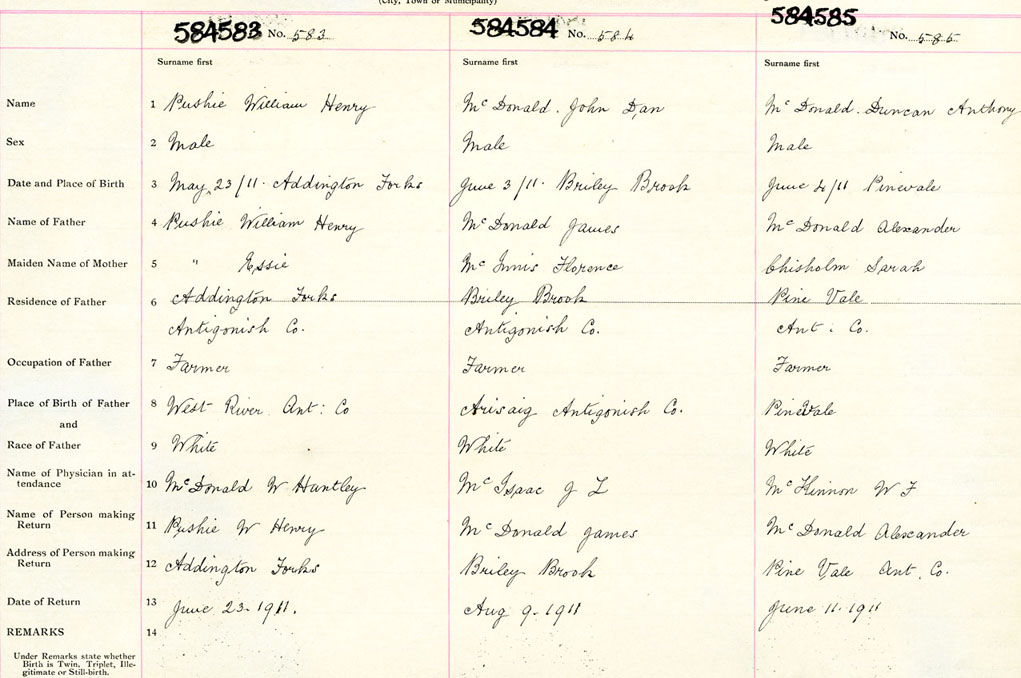 (City, Town or Municipality)
584583 No. 583 584584 No. 584 584585 No. 585
Surname first Surname first Surname first
Name 1 Pushie William Henry McDonald. John Dan McDonald. Duncan Anthony
Sex 2 Male Male Male
Date and Place of Birth 3 May 23/11. Addington Forks June 3/11. Briley Brook June 4/11 Pinevale
Name of Father 4 Pushie William Henry McDonald James McDonald Alexander
Maiden Name of Mother 5 " Essie McInnis Florence Chisholm Sarah
Residence of Father 6 Addington Forks Briley Brook Pine Vale
Antigonish Co. Antigonish Co. Ant: Co.
Occupation of Father 7 Farmer Farmer Farmer
Place of Birth of Father 8 West River Ant: Co Arisaig Antigonish Co. PineVale
and
Race of Father 9 White White White
Name of Physician in at-
tendance 10 McDonald W Huntley McIsaac J L McKinnon W F
Name of Person making
Return 11 Pushie W Henry McDonald James McDonald Alexander
Address of Person making
Return 12 Addington Forks Briley Brook Pine Vale Ant. Co.
Date of Return 13 June 23-1911. Aug 9-1911 June 11-1911
REMARKS 14
Under Remarks state whether
Birth is Twin, Triplet, Ille-
gitimate or Still-birth.